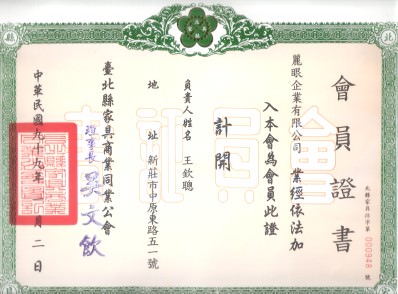 會員證書
北縣家具註字第000948號
麗眼企業有限公司 業經依法加
入本會為會員此證
計開
負責人姓名 王欽聰
地址 新莊市中原東路五一號
臺北縣家具商業同業公會
理事長 吳文欽
中華民國九十九年 月二日
北
縣